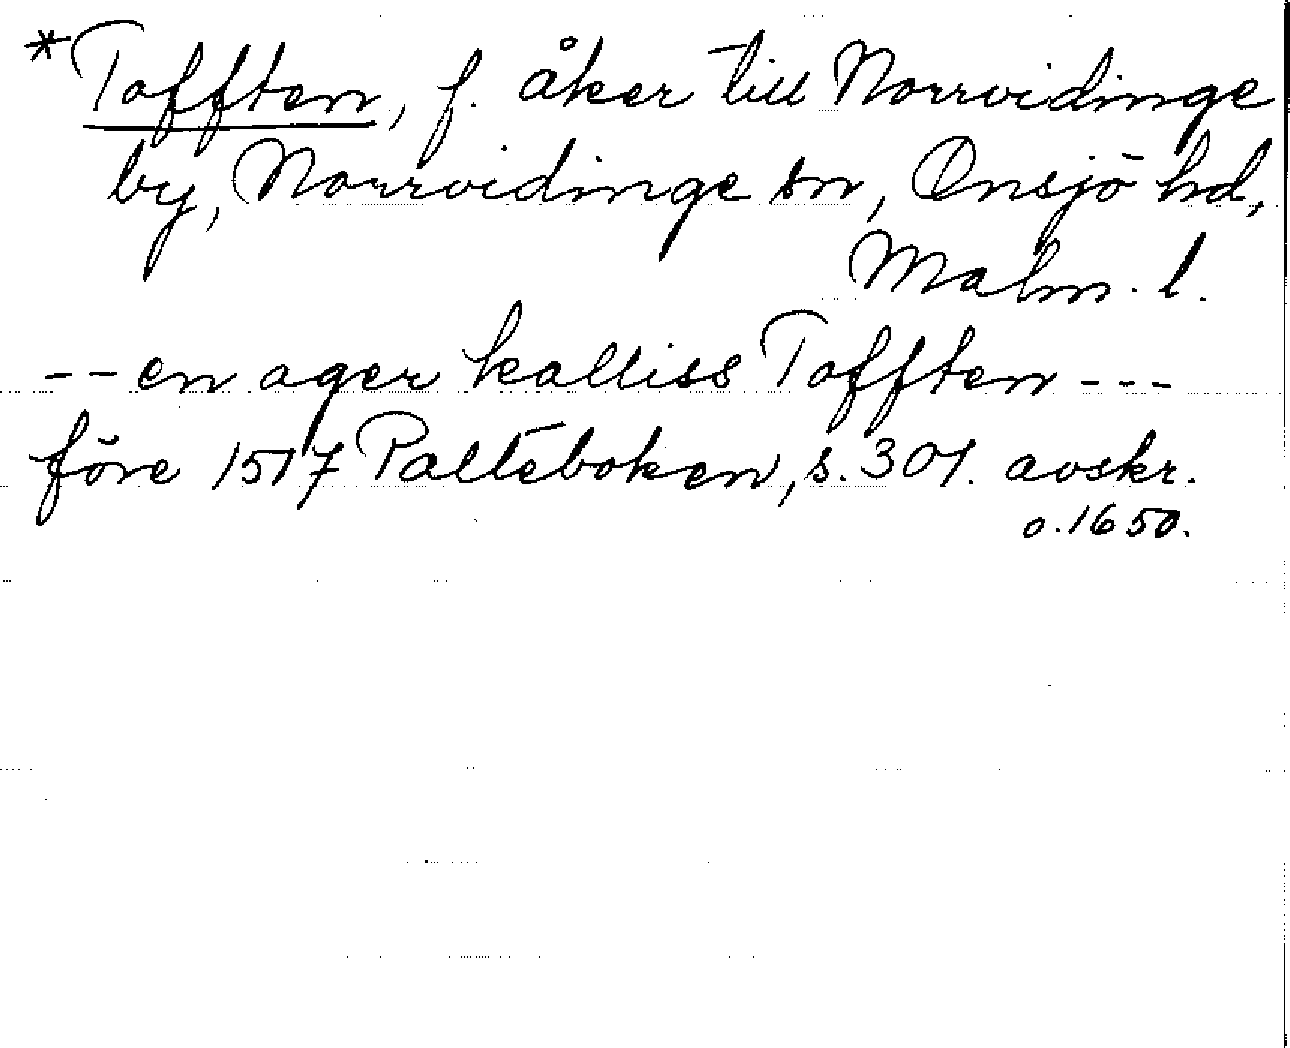 *Tofften, f. åker till Norrvidinge
by, Norrvidinge sn, Onsjö hd,
Malm. l.
-- en ager kalliss Tofften ---
före 1517 Palteboken, s. 301. avskr.
o. 1650.